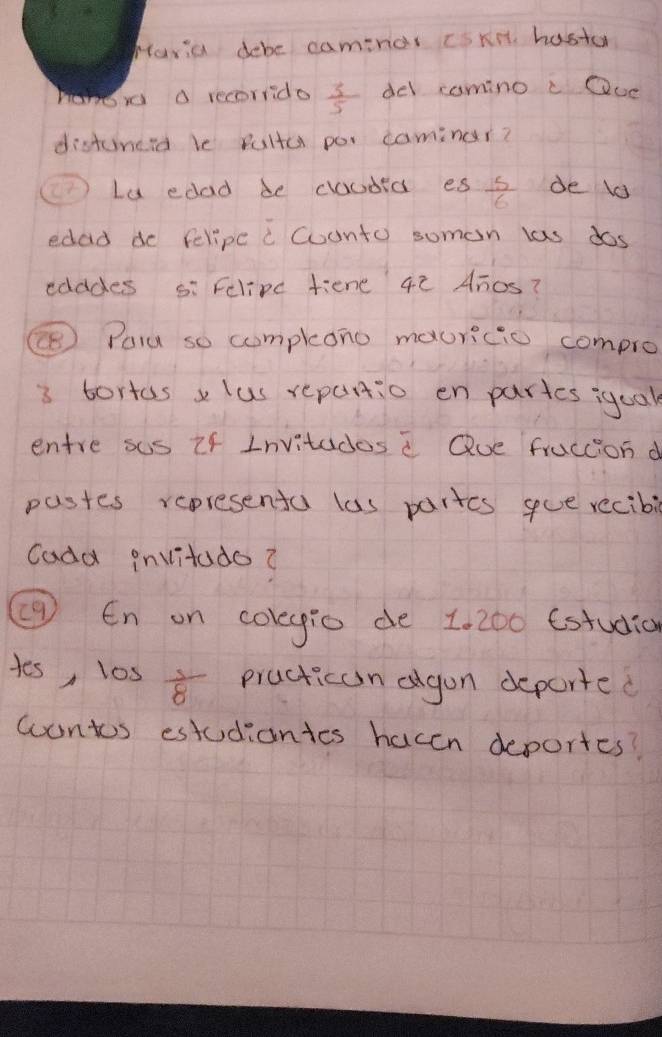 Maria debe caminar 25 KM. hasta
ahora a recorrido 3/5 del camino ¿ Que
distancia le falta por caminar?
27 La edad de claudia es 5/6 de la
edad de felipe ¿ Cuanto soman las dos
edades si Felipe tiene 42 Años?
28 Para so compleaño mauricio compro
3 tortas y las repartio en partes igual
entre sus 24 Invitados ¿ Que fraccion d
pastes representa las partes que recibi
Cada invitado?
29 En un colegio de 1.200 Estudian
tes, los /8 practican algun deporte ¿
Cuantos estudiantes hacen deportes?